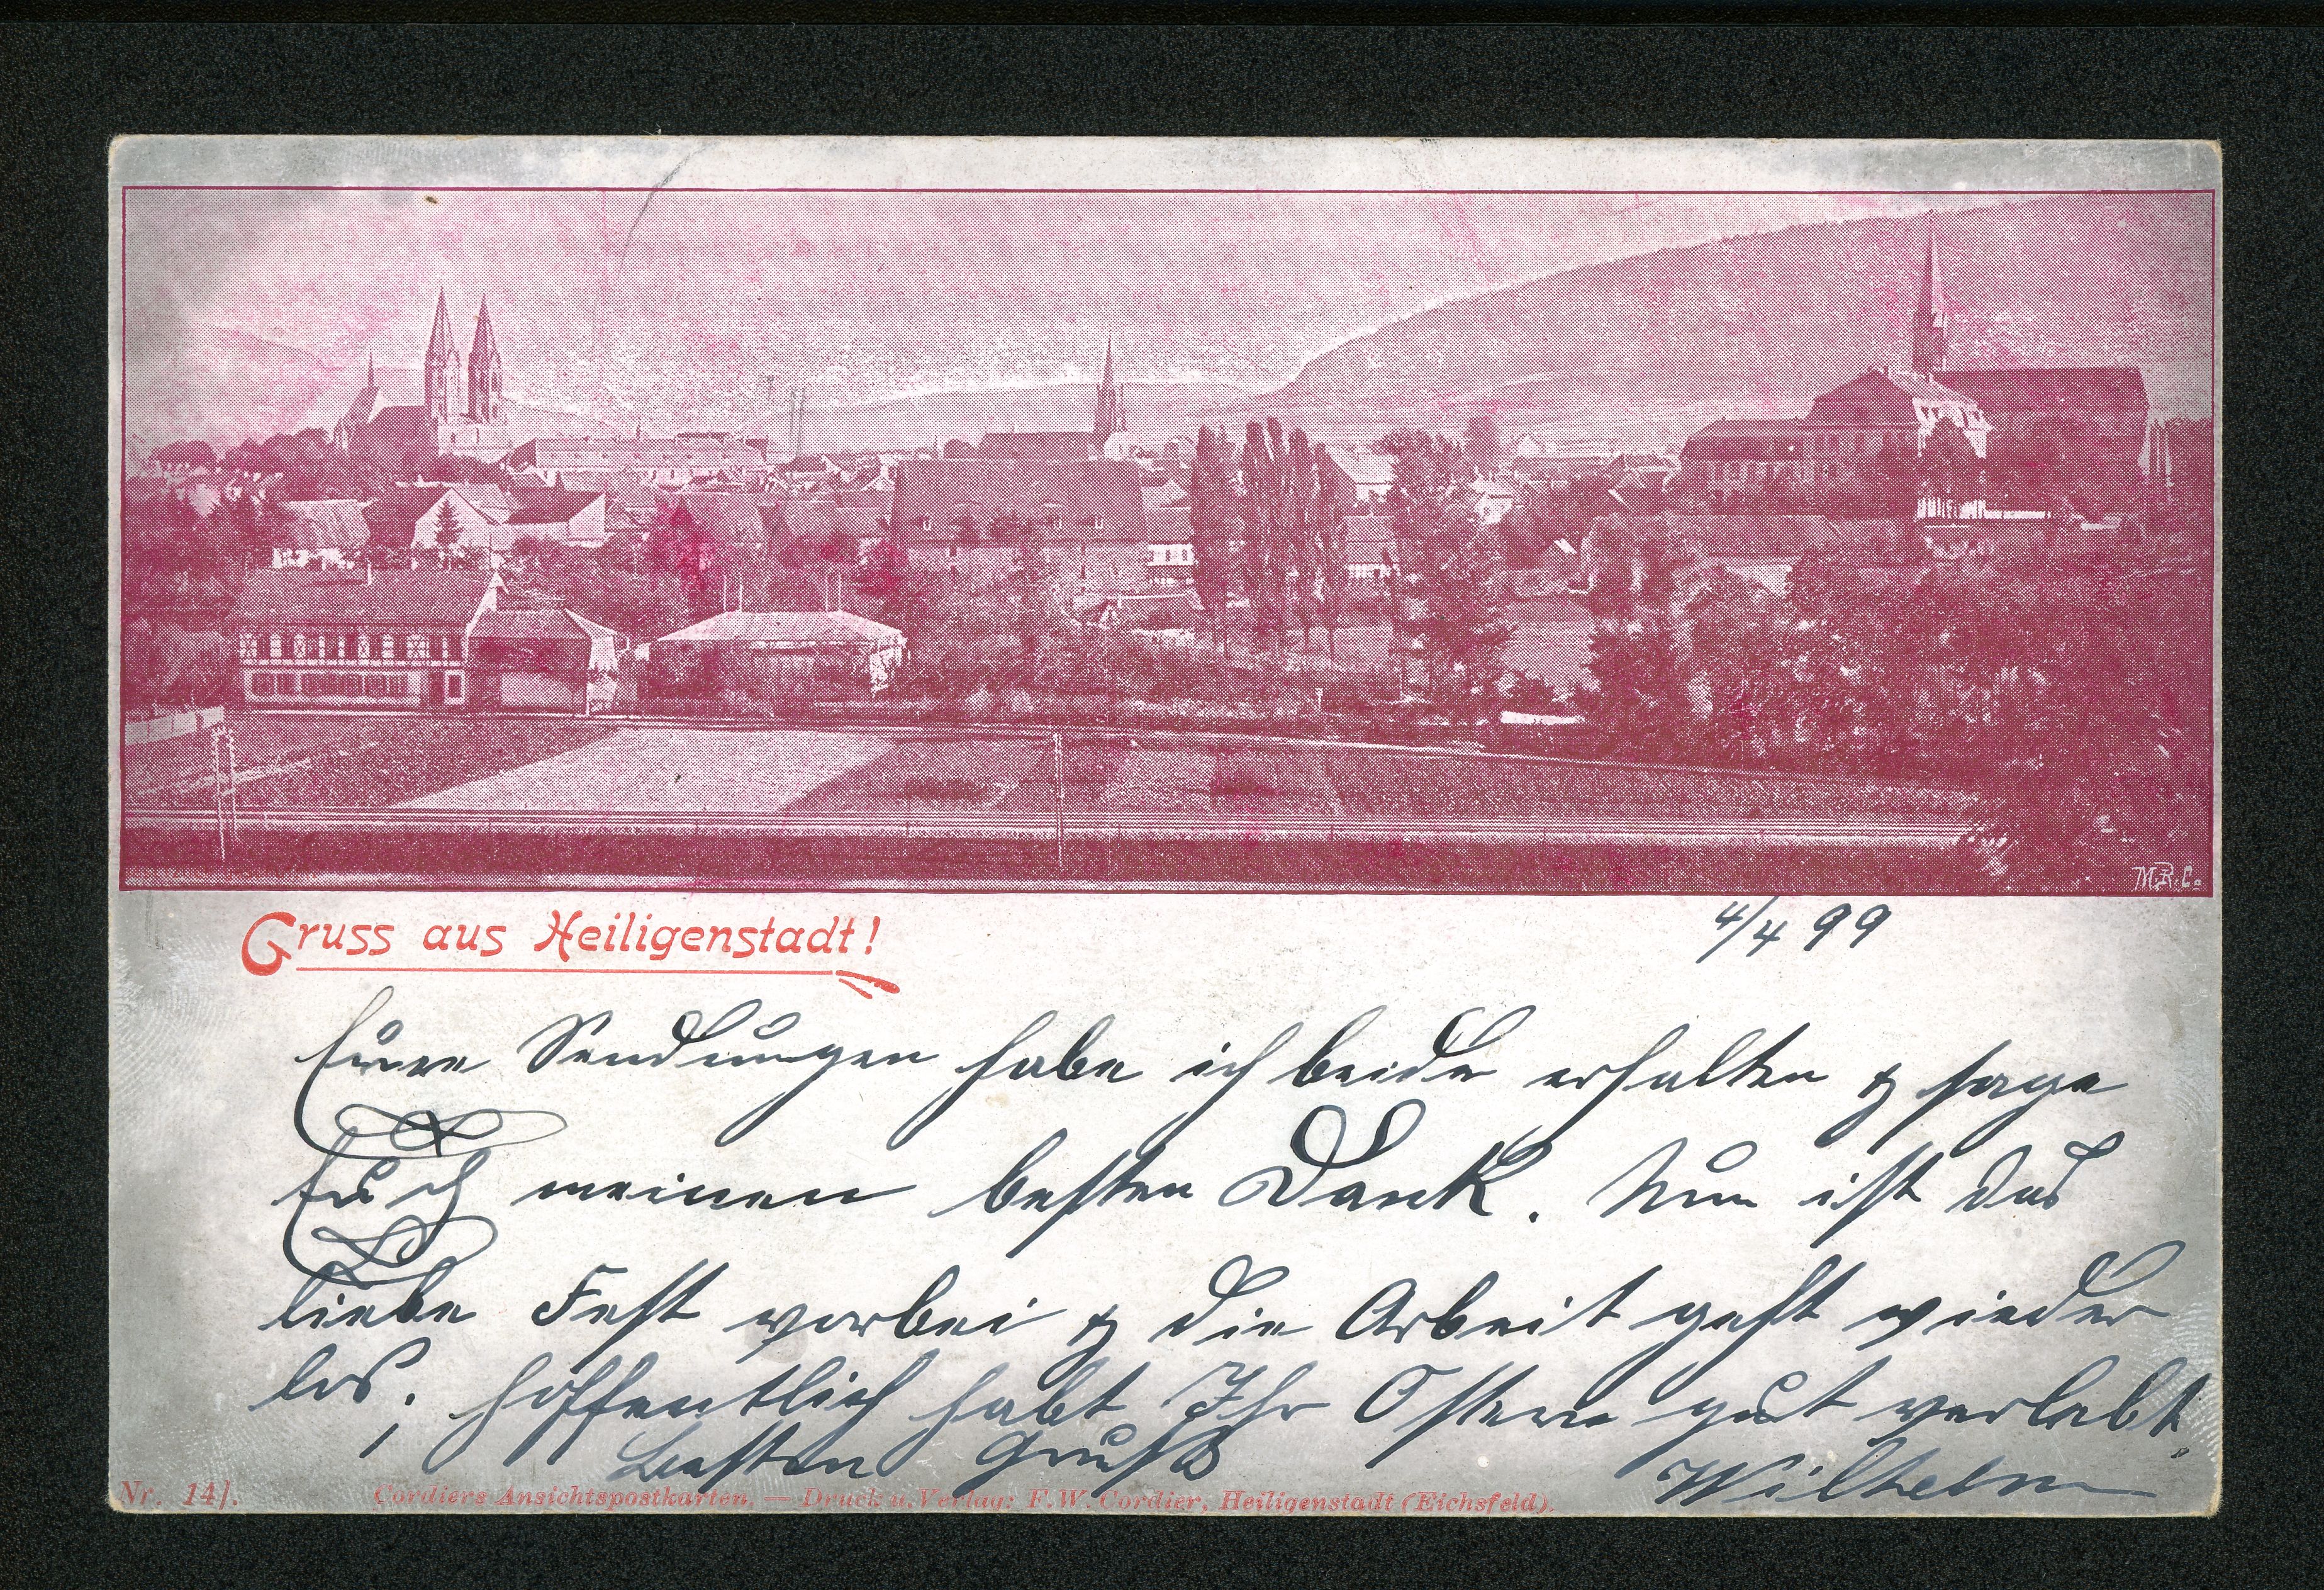 M.R.C.
Gruss aus Heiligenstadt!
4/4 99
Euere Sendungen habe ich beide erhalten & sage
Euch meinen besten Dank. Nun ist das
liebe Fest vorbei & die Arbeit geht wieder
los; hoffentlich habt Ihr Ostern gut verlebt.
Besten Gruß
Wilhelm
Nr. 14].
Cordiers Ansichtspostkarten. — Druck u. Verlag: F. W. Cordier, Heiligenstadt (Eichsfeld).